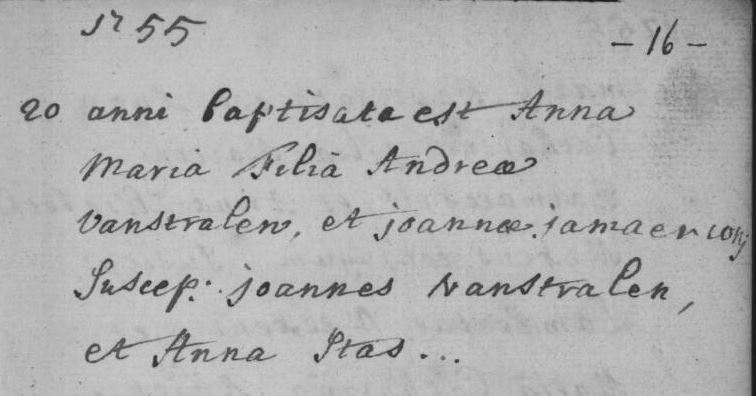 1755
- 16 -
20 anni baptisata est Anna
Maria Filia Andreæ
vanstralen, et joannæ jamaer conj
Suscep: joannes vanstralen,
et Anna Stas...